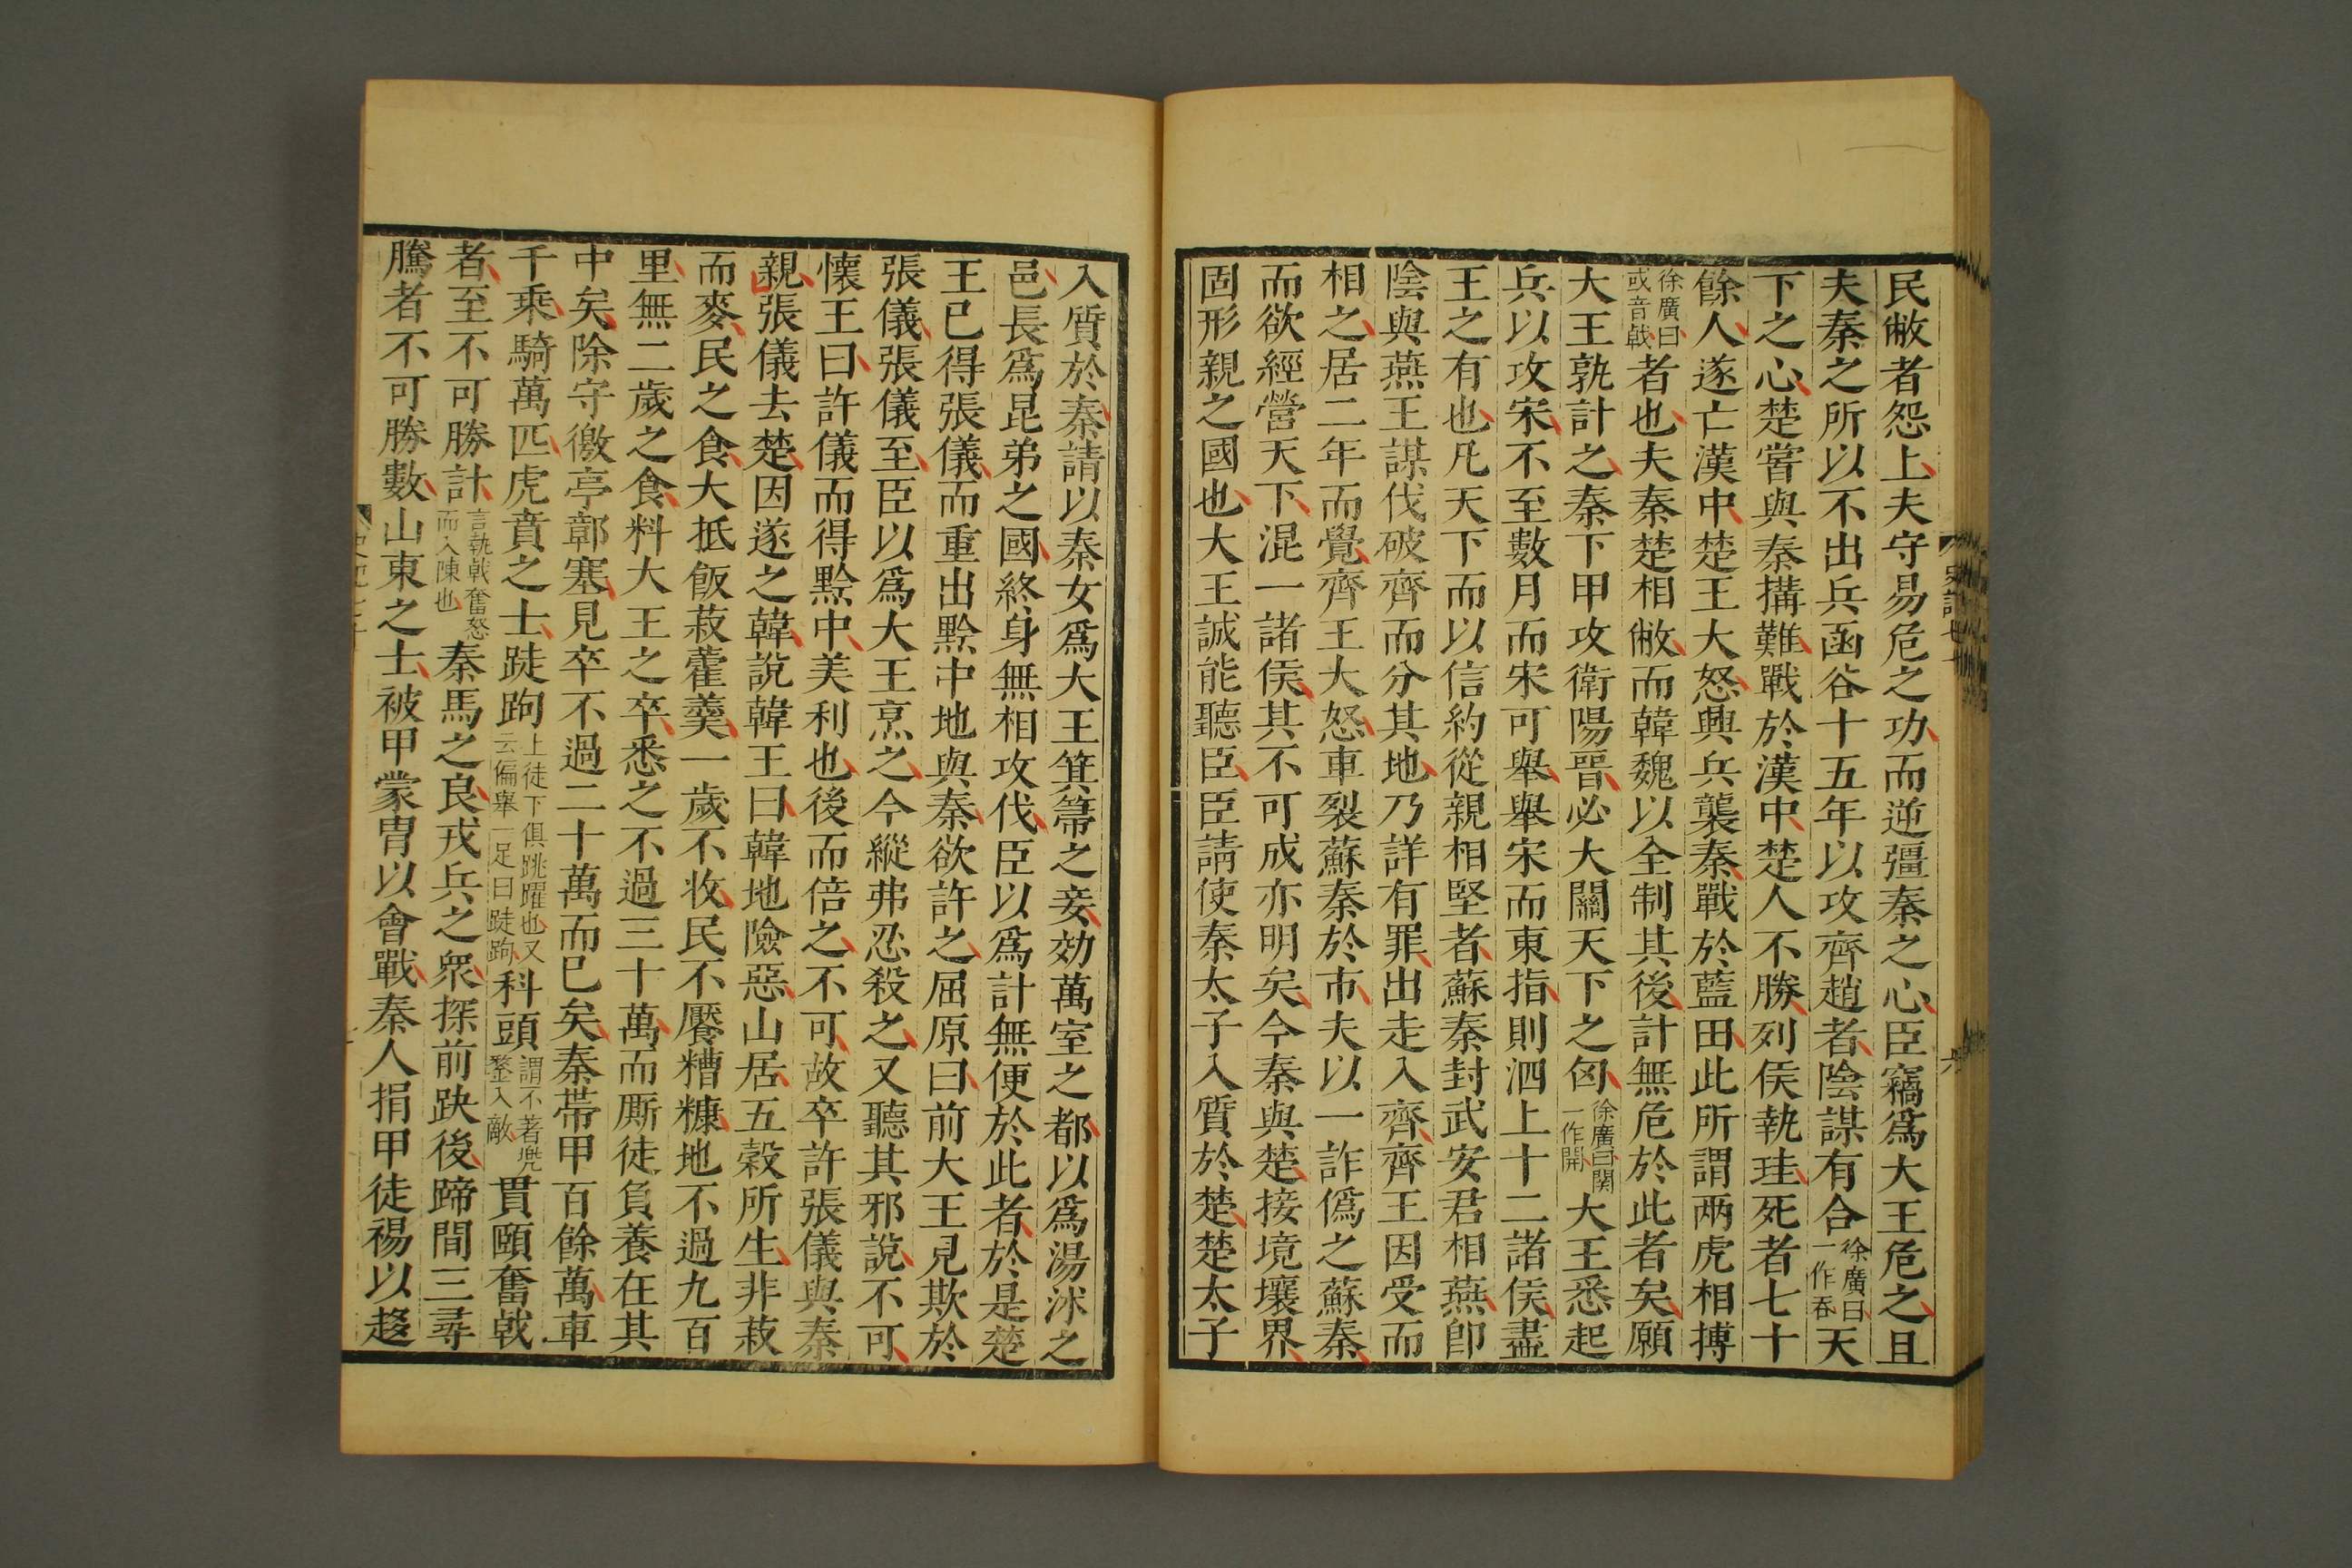 民敝者怨上夫守易危之功而逆彊秦之心臣竊爲大王危之且
夫秦之所以不出兵函谷十五年以攻齊趙者陰謀有合徐廣曰一作吞天
下之心楚嘗與秦構難戰於漢中楚人不勝列侯執珪死者七十
餘人遂亡漢中楚王大怒興兵襲秦戰於藍田此所謂兩虎相搏
徐廣曰或音戟者也夫秦楚相敝而韓魏以全制其後計無危於此者矣願
大王孰計之秦下甲攻衛陽晉必大關天下之匈徐廣曰関一作開大王悉起
兵以攻宋不至數月而宋可舉舉宋而東指則泗上十二諸侯盡
王之有也凡天下而以信約從親相堅者蘇秦封武安君相燕即
陰與燕王謀伐破齊而分其地乃詳有罪出走入齊齊王因受而
相之居二年而覺齊王大怒車裂蘇秦於市夫以一詐僞之蘇秦
而欲經營天下混一諸侯其不可成亦明矣今秦與楚接境壤界
固形親之國也大王誠能聽臣臣請使秦太子入質於楚楚太子
入質於秦請以秦女爲大王箕箒之妾効萬室之都以爲湯沐之
邑長爲昆弟之國終身無相攻伐臣以爲計無便於此者於是楚
王已得張儀而重出黔中地與秦欲許之屈原曰前大王見欺於
張儀張儀至臣以爲大王烹之今縱弗忍殺之又聽其邪說不可
懷王曰許儀而得黔中美利也後而倍之不可故卒許張儀與秦
親張儀去楚因遂之韓說韓王曰韓地險惡山居五穀所生非菽
而麥民之食大抵飯菽藿羹一歲不收民不饜糟糠地不過九百
里無二歲之食料大王之卒悉之不過三十萬而厮徒負養在其
中矣除守徼亭鄣塞見卒不過二十萬而已矣秦帶甲百餘萬車
千乘騎萬匹虎賁之士跿跔上徒下俱跳躍也又云偏舉一足曰跿跔科頭謂不著兠鍪入敵貫頤奮戟
者至不可勝計言執戟奮怒而入陳也秦馬之良戎兵之衆探前趹後蹄間三尋
騰者不可勝數山東之士被甲蒙冑以會戰秦人捐甲徒裼以趍
史記七十
六